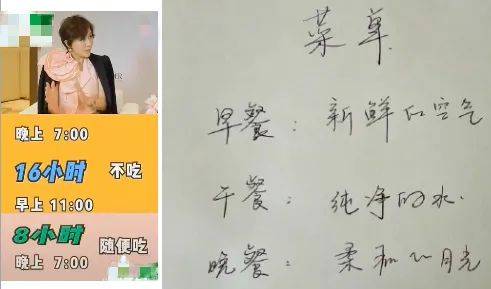 晚上 7:00
16小时 不吃
早上 11:00
8小时 随便吃
晚上 7:00
菜单
早餐：新鲜的空气
午餐：纯净的水.
晚餐：柔和的月光